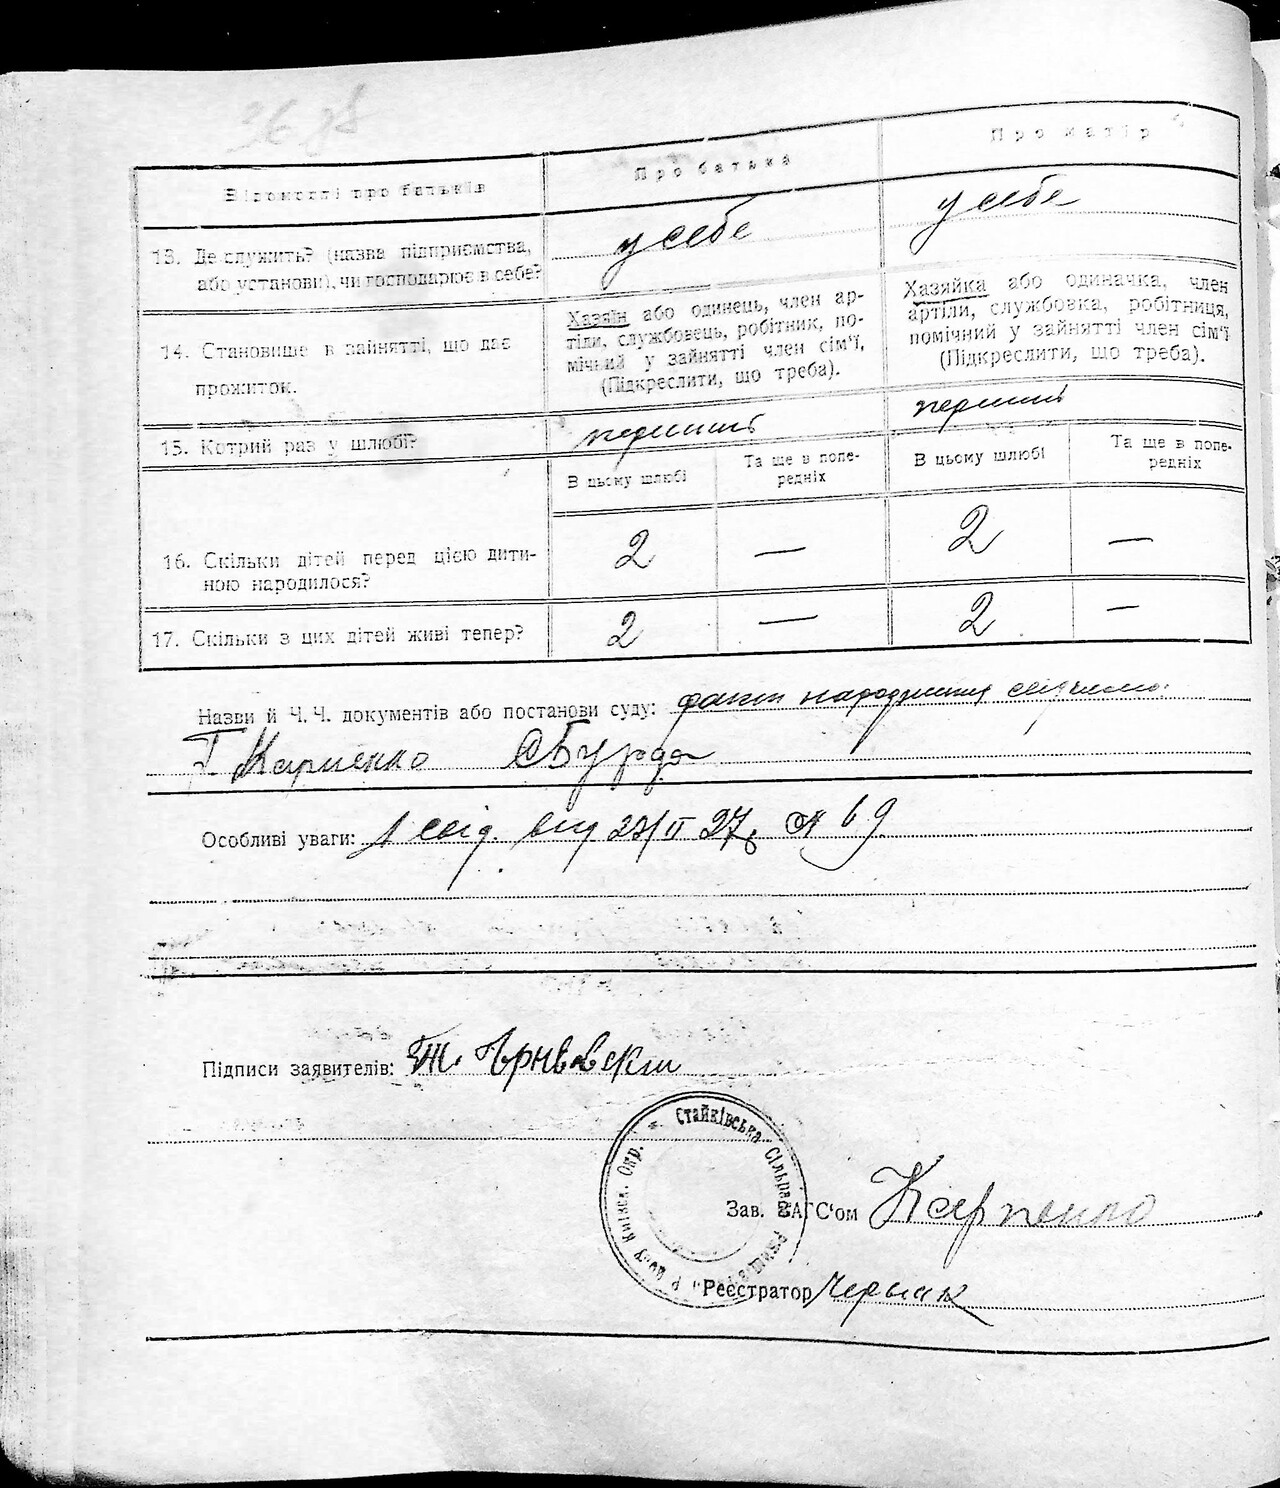 36 зв
Відомості про батьків
Про батька
Про матір
13. Де служить? (назва підприємства, або установи), чи господарює в себе?
у себе
у себе
14. Становище в зайнятті, що дає прожиток.
Хазяїн або одинець, член ар-
тіли, службовець, робітник, по-
мічний у зайнятті член сім'ї,
(Підкреслити, що треба).
Хазяйка або одиначка, член
артіли, службовка, робітниця,
помічний у зайнятті член сім'ї
(Підкреслити, що треба).
15. Котрий раз у шлюбі?
перший
перший
В цьому шлюбі
Та ще в попе-
редніх
В цьому шлюбі
Та ще в попе-
редніх
16. Скільки дітей перед цією дити-
ною народилося?
2 — 2 —
17. Скільки з цих дітей живі тепер? 2 — 2 —
Назви й Ч. Ч. документів або постанови суду: факт народження свідчимо:
Т. Карпенко С Бурда
Особливі уваги: свід. від II 27 № 69
Підписи заявителів:
Стайківська Сільрада Ржищівськ. Району Київск. Окр.
Зав. ЗАГС'ом Карпенко
Реєстратор Черняк